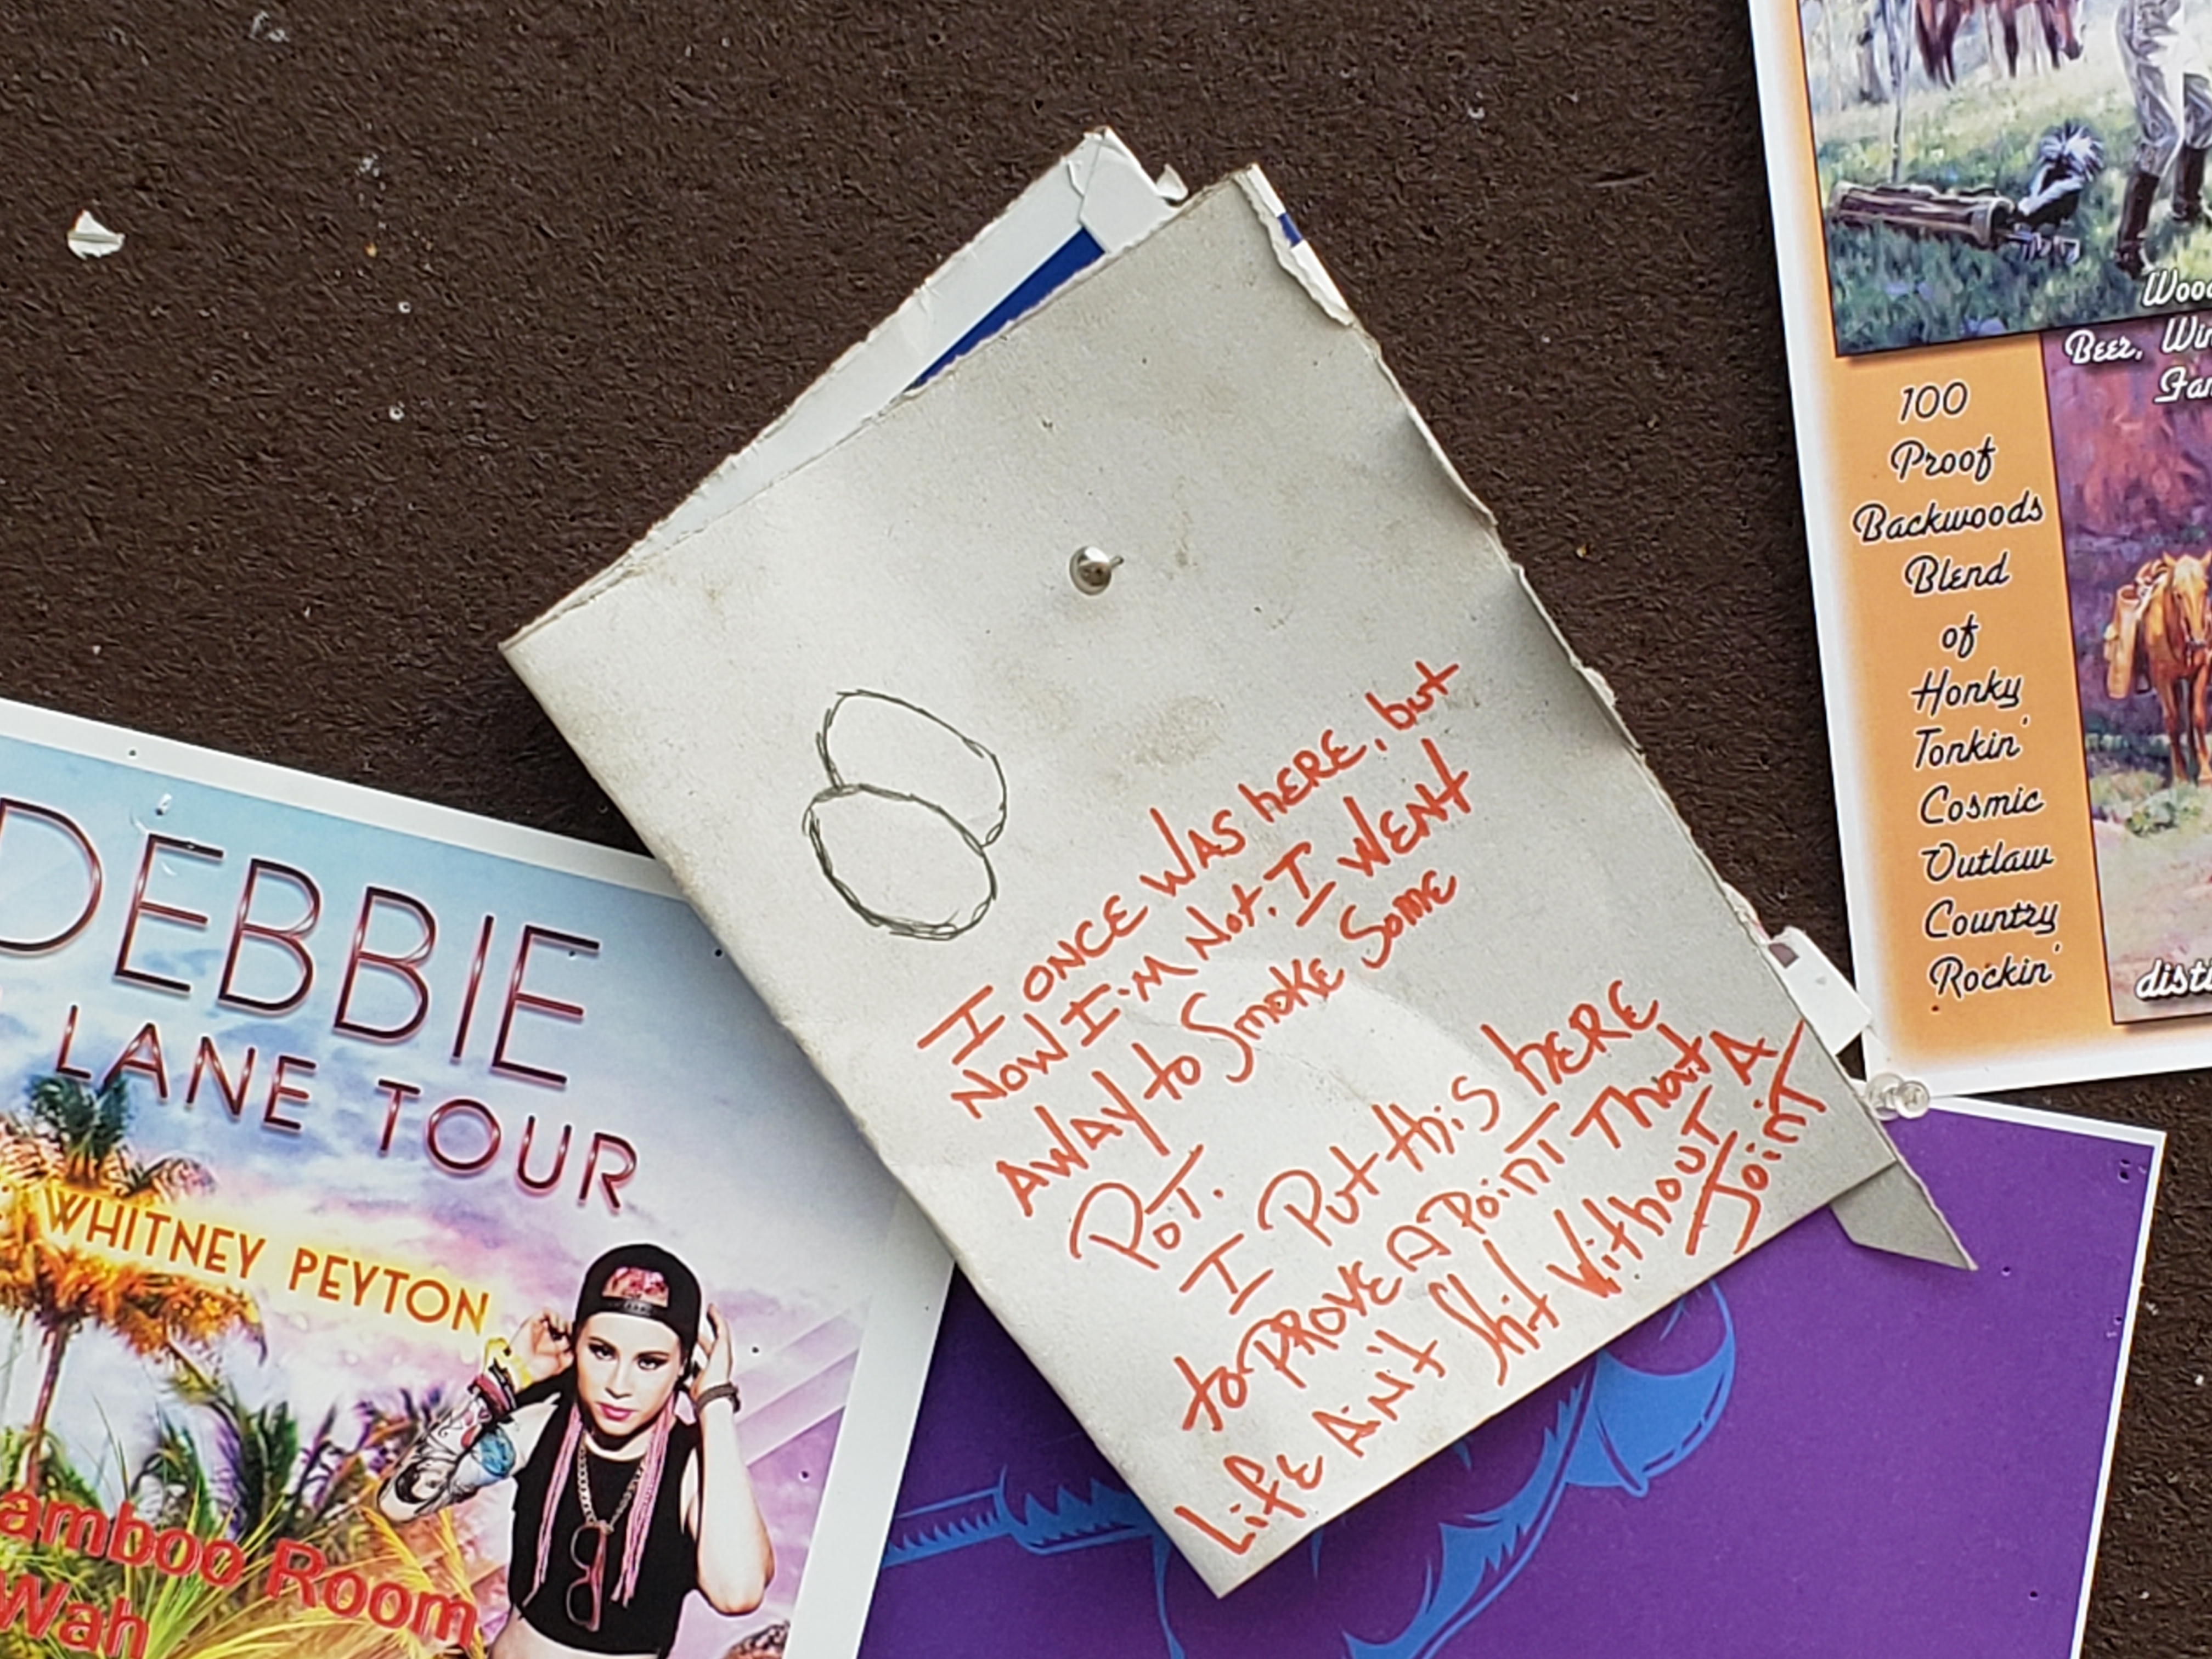 I ONCE WAS hERE, but
NOW I'M Not. I WENT
AWAY to SmOKE SomE
POT.
I Put this hERE
to PROVE A POINT That
LifE AiN't Shit Without A
JOiNT
DEBBIE
LANE TOUR
WHITNEY PEYTON
amboo Room
Wah
Beer,
100
Proof
Backwoods
Blend
of
Honky
Tonkin'
Cosmic
Outlaw
Country
Rockin'